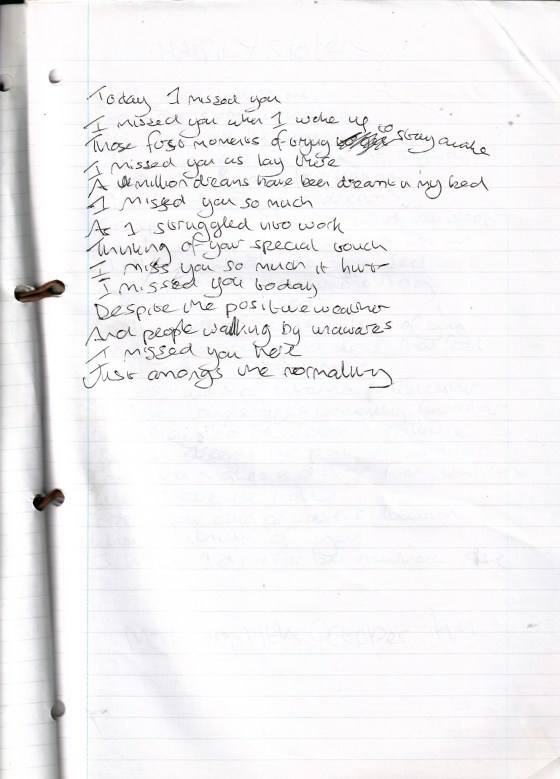 Today I missed you
I missed you when I woke up
Those first moments of trying to stay awake
I missed you as lay there
A million dreams have been dreamt in my bed
I missed you so much
As I struggled into work
Thinking of your special touch
I miss you so much it hurt
I missed you today
Despite the positive weather
And people walking by unawares
I missed you here
Just amongs the normality